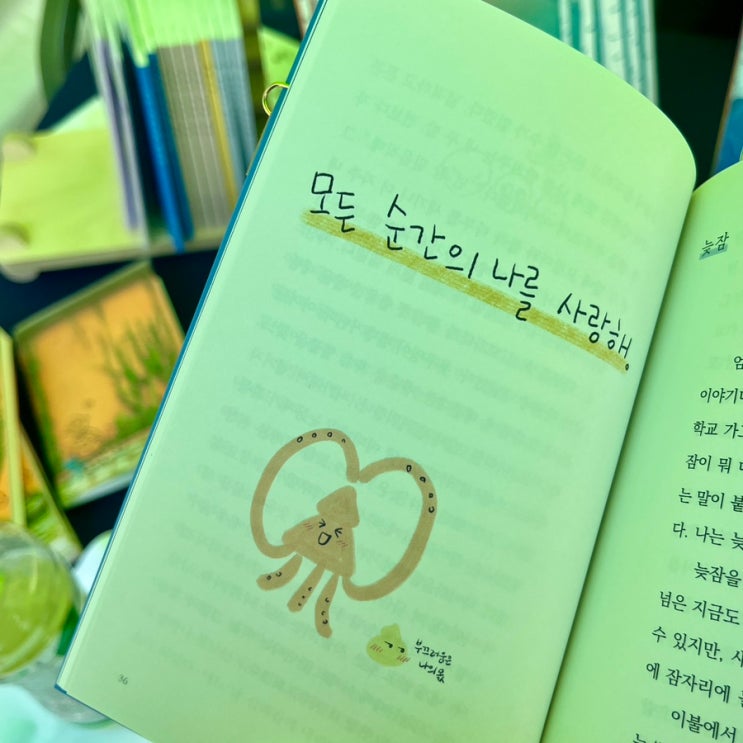 모든 순간의 나를 사랑해.
부끄러움은
나의 몫
36
늦잠
엄
이야기
학교 가
잠이 뭐
는 말이 붙
다. 나는 늦
늦잠을
넘은 지금도
수 있지만, 사
에 잠자리에
이불에서